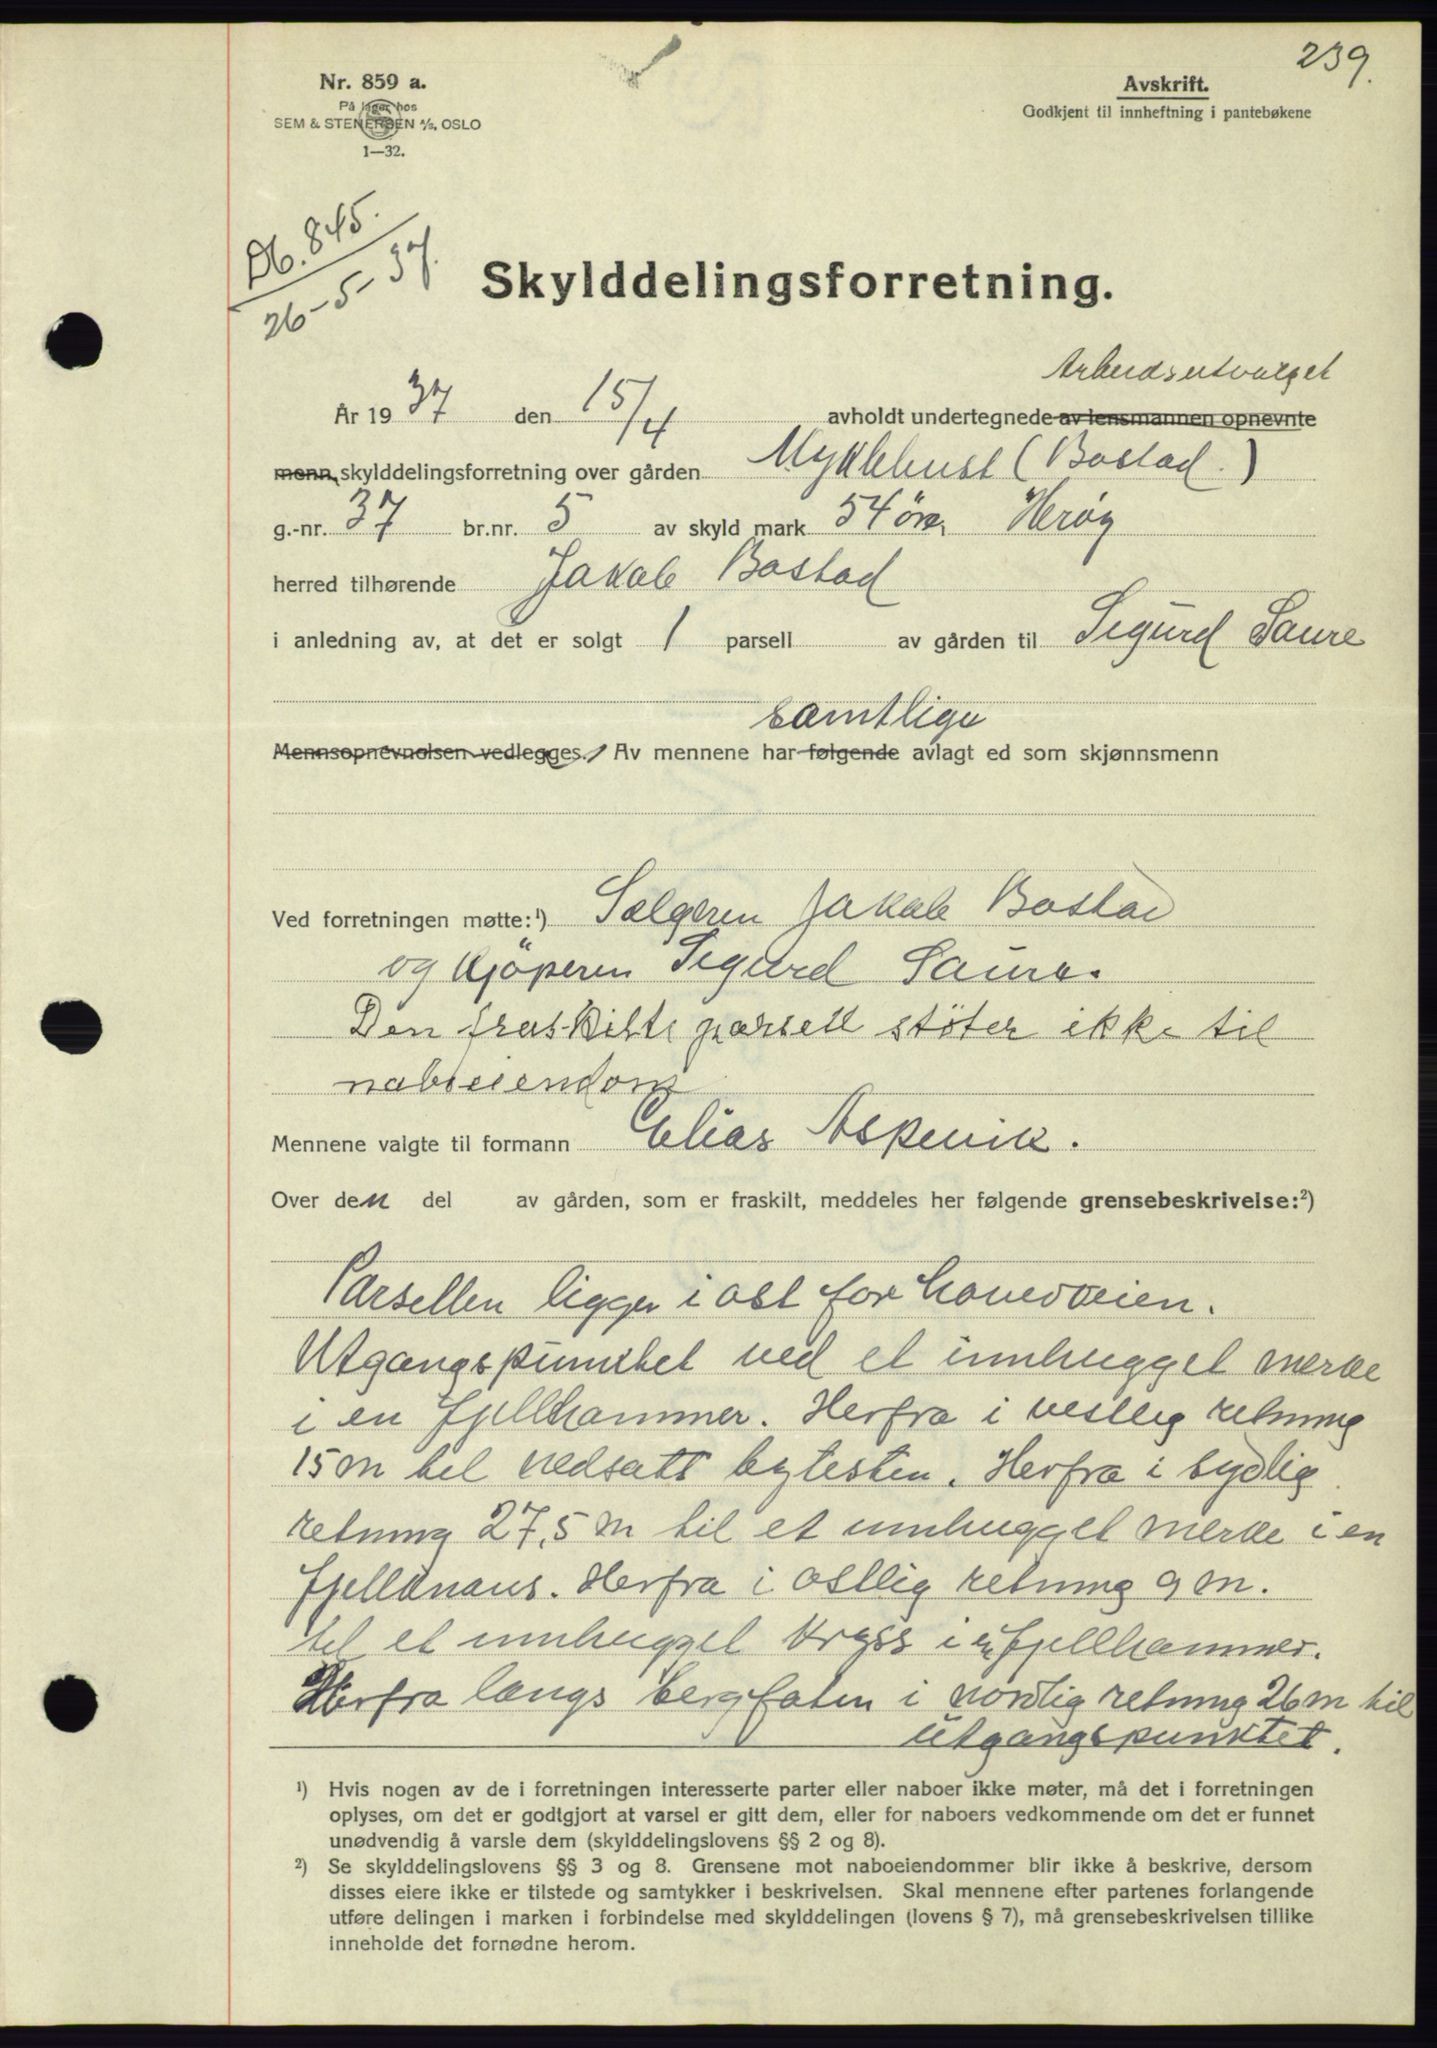 239.
Nr. 859 a.
På lager hos
SEM & STENERSEN A/S, OSLO
1—32.
Avskrift.
Godkjent til innheftning i pantebøkene
Db. 845.
26-5-37.
Skylddelingsforretning.
Arbeidsutvalget
År 1937 den 15/4 avholdt undertegnede av lensmannen opnevnte
menn skylddelingsforretning over gården Myklebust (Bostad.)
g.-nr. 37 br.nr. 5 av skyld mark 54 öre, Herøy
herred tilhørende Jakob Bostad
i anledning av, at det er solgt 1 parsell av gården til Sigurd Saure
samtlige
Mennsopnevnelsen vedlegges. Av mennene har følgende avlagt ed som skjønnsmenn
Ved forretningen møtte:¹) Selgeren Jakob Bostad
og Kjöperen Sigurd Saure.
Den fraskilte parsell stöter ikke til
naboeiendom
Mennene valgte til formann Elias Aspevik.
Over den del av gården, som er fraskilt, meddeles her følgende grensebeskrivelse:²)
Parsellen ligger i ost for hovedveien.
Utgangspunktet ved et innhugget merke
i en fjellhammer. Herfra i vestlig retning
15 m til nedsatt bytesten. Herfra i sydlig
retning 27,5 m til et innhugget merke i en
fjellknaus. Herfra i ostlig retning 9 m.
til et innhugget kryss i en fjellhammer.
Herfra langs bergfoten i nordlig retning 26 m til
utgangspunktet.
¹) Hvis nogen av de i forretningen interesserte parter eller naboer ikke møter, må det i forretningen
oplyses, om det er godtgjort at varsel er gitt dem, eller for naboers vedkommende om det er funnet
unødvendig å varsle dem (skylddelingslovens §§ 2 og 8).
²) Se skylddelingslovens §§ 3 og 8. Grensene mot naboeiendommer blir ikke å beskrive, dersom
disses eiere ikke er tilstede og samtykker i beskrivelsen. Skal mennene efter partenes forlangende
utføre delingen i marken i forbindelse med skylddelingen (lovens § 7), må grensebeskrivelsen tillike
inneholde det fornødne herom.